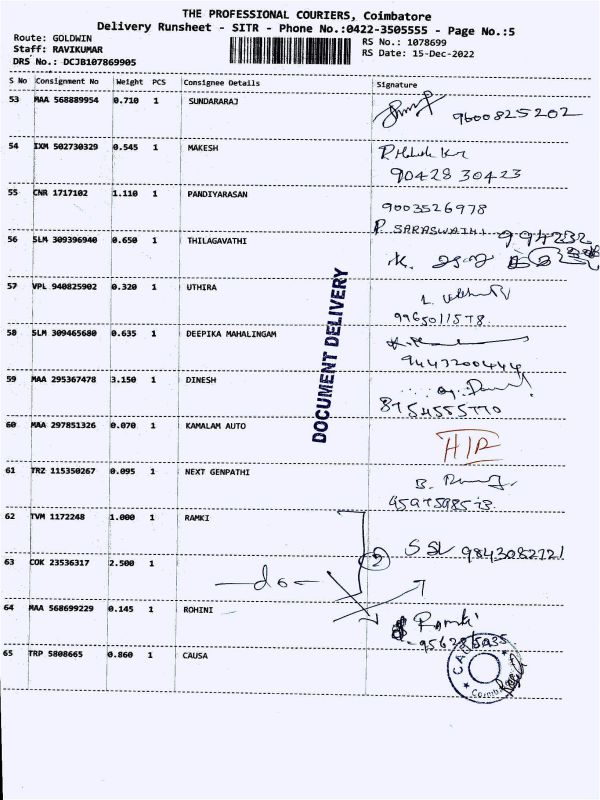 THE PROFESSIONAL COURIERS, Coimbatore
Delivery Runsheet - SITR - Phone No.:0422-3505555 - Page No.:5
Route: GOLDWIN
Staff: RAVIKUMAR
DRS No.: DCJB107869905
RS No.: 1078699
RS Date: 15-Dec-2022
S No Consignment No Weight PCS Consignee Details Signature
53 MAA 568889954 0.710 1 SUNDARARAJ
9600825202
54 IXM 502730329 0.545 1 MAKESH
90428 30423
55 CNR 1717102 1.110 1 PANDIYARASAN
9003526978
P. SARASWATHI
56 SLM 309396940 0.650 1 THILAGAVATHI
994232
57 VPL 940825902 0.320 1 UTHIRA
9965011578
58 SLM 309465680 0.635 1 DEEPIKA MAHALINGAM
9443200444
59 MAA 295367478 3.150 1 DINESH
8754555770
60 MAA 297851326 0.070 1 KAMALAM AUTO
61 TRZ 115350267 0.095 1 NEXT GENPATHI
62 TVM 1172248 1.000 1 RAMKI
2 SSL 9843082721
63 COK 23536317 2.500 1
-do-
64 MAA 568699229 0.145 1 ROHINI
Ramki
65 TRP 5808665 0.860 1 CAUSA
DOCUMENT DELIVERY